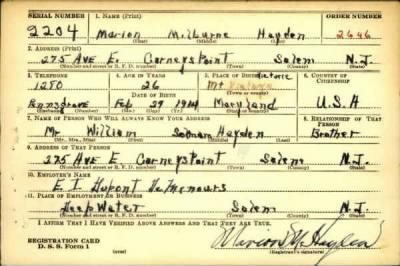 SERIAL NUMBER 1. NAME (Print) ORDER NUMBER
2204 Marion Milburne Hayden 2646
(First) (Middle) (Last)
2. ADDRESS (Print)
275 Ave E. Carneys Point Salem N.J.
(Number and street or R. F. D. number) (Town) (County) (State)
3. TELEPHONE 4. AGE IN YEARS 5. PLACE OF BIRTH 6. COUNTRY OF CITIZENSHIP
1280 26 Mt Victoria
DATE OF BIRTH (Town or county)
Pennsgrove Feb 29 1914 Maryland U.S.A
(Exchange) (Number) (Mo.) (Day) (Yr.) (State or country)
7. NAME OF PERSON WHO WILL ALWAYS KNOW YOUR ADDRESS 8. RELATIONSHIP OF THAT PERSON
Mr William Hayden Brother
(Mr., Mrs., Miss) (First) (Middle) (Last)
9. ADDRESS OF THAT PERSON
275 Ave E Carneys Point Salem N.J.
(Number and street or R. F. D. number) (Town) (County) (State)
10. EMPLOYER'S NAME
E. I. Dupont
11. PLACE OF EMPLOYMENT OR BUSINESS
Deep Water Salem N.J.
(Number and street or R. F. D. number) (Town) (County) (State)
I AFFIRM THAT I HAVE VERIFIED ABOVE ANSWERS AND THAT THEY ARE TRUE.
REGISTRATION CARD
D. S. S. Form 1 (over) (Registrant's signature)
Marion M Hayden